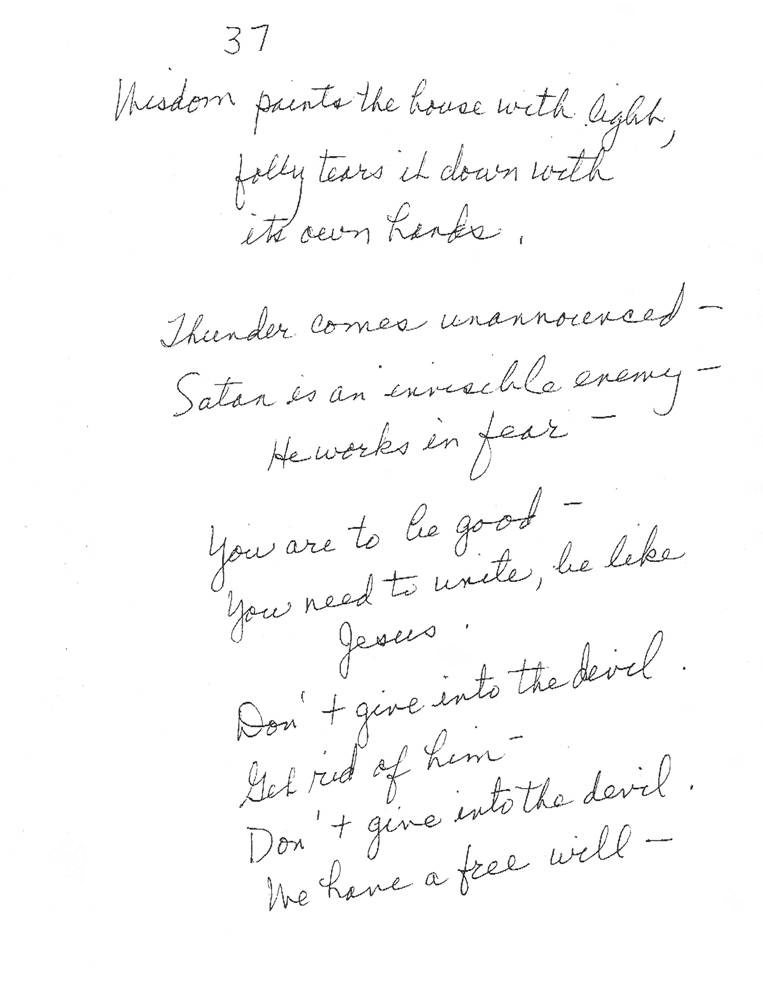 37
Wisdom paints the house with light,
folly tears it down with
its own hands.
Thunder comes unannounced –
Satan is an invisible enemy –
He works in fear –
You are to be good –
You need to unite, be like
Jesus.
Don't give into the devil.
Get rid of him –
Don't give into the devil.
We have a free will –